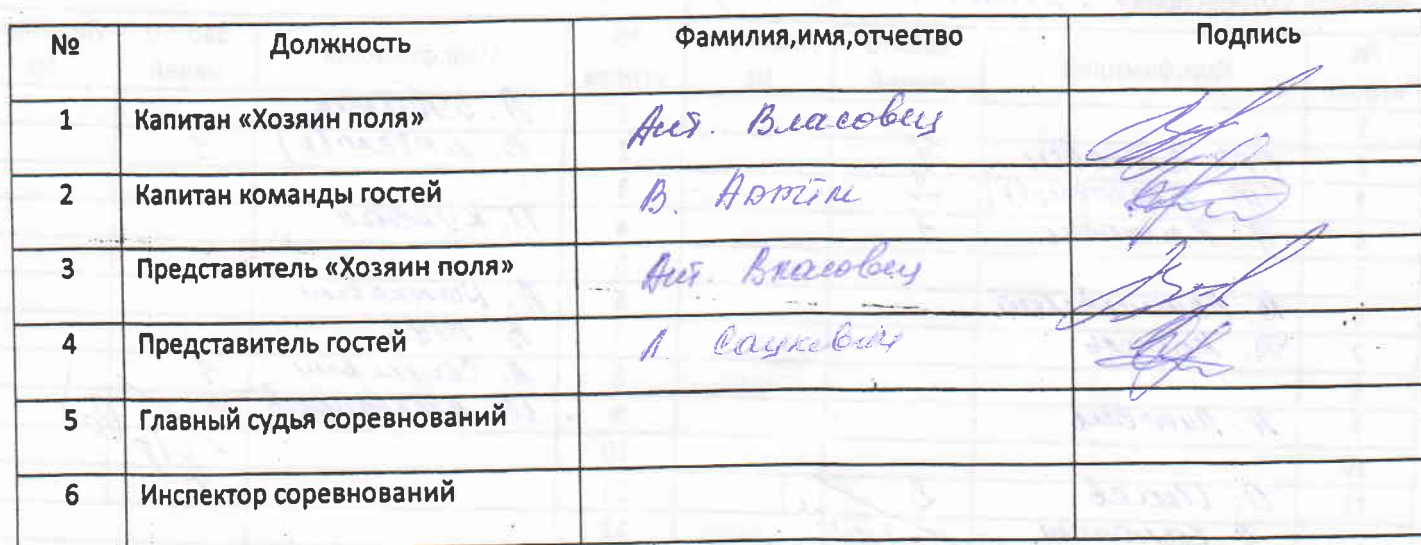 № Должность Фамилия,имя,отчество Подпись
1 Капитан «Хозяин поля» Ант. Власовец
2 Капитан команды гостей В.
3 Представитель «Хозяин поля» Ант. Власовец
4 Представитель гостей Л. Сацкевич
5 Главный судья соревнований
6 Инспектор соревнований